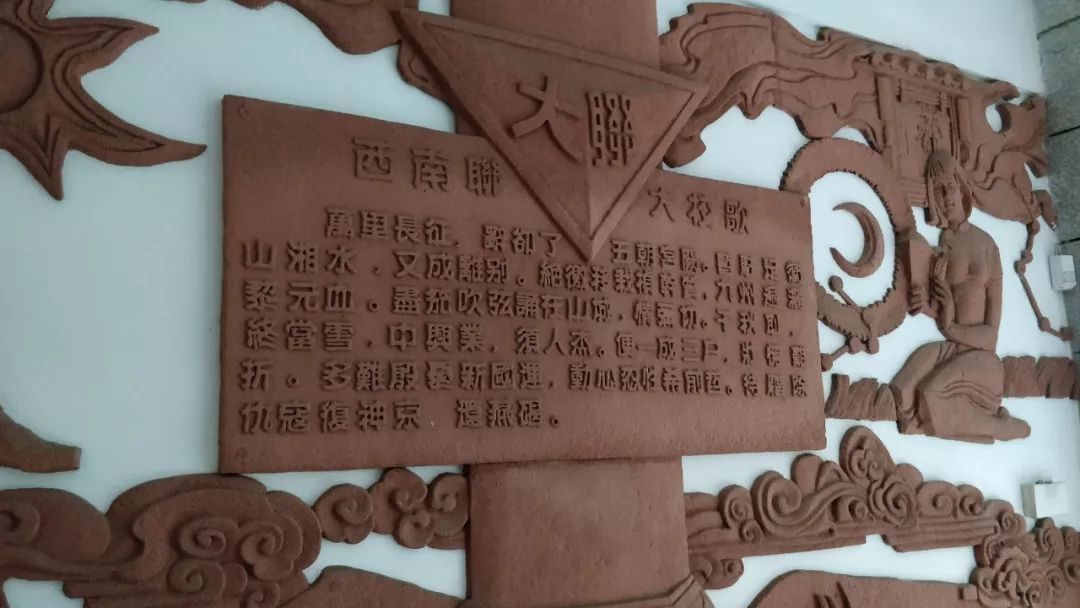 大聯
西南聯 大校歌
萬里長征，辭却了 五朝宮闕。暫駐足衡
山湘水，又成離別。絕徼移栽楨幹質，九州遍灑
黎元血。盡笳吹弦誦在山城，情彌切。千秋恥，
終當雪，中興業，須人杰。便一成三戶，壯懷難
折。多難殷憂新國運，動心忍性希前哲。待驅除
仇寇復神京，還燕碣。